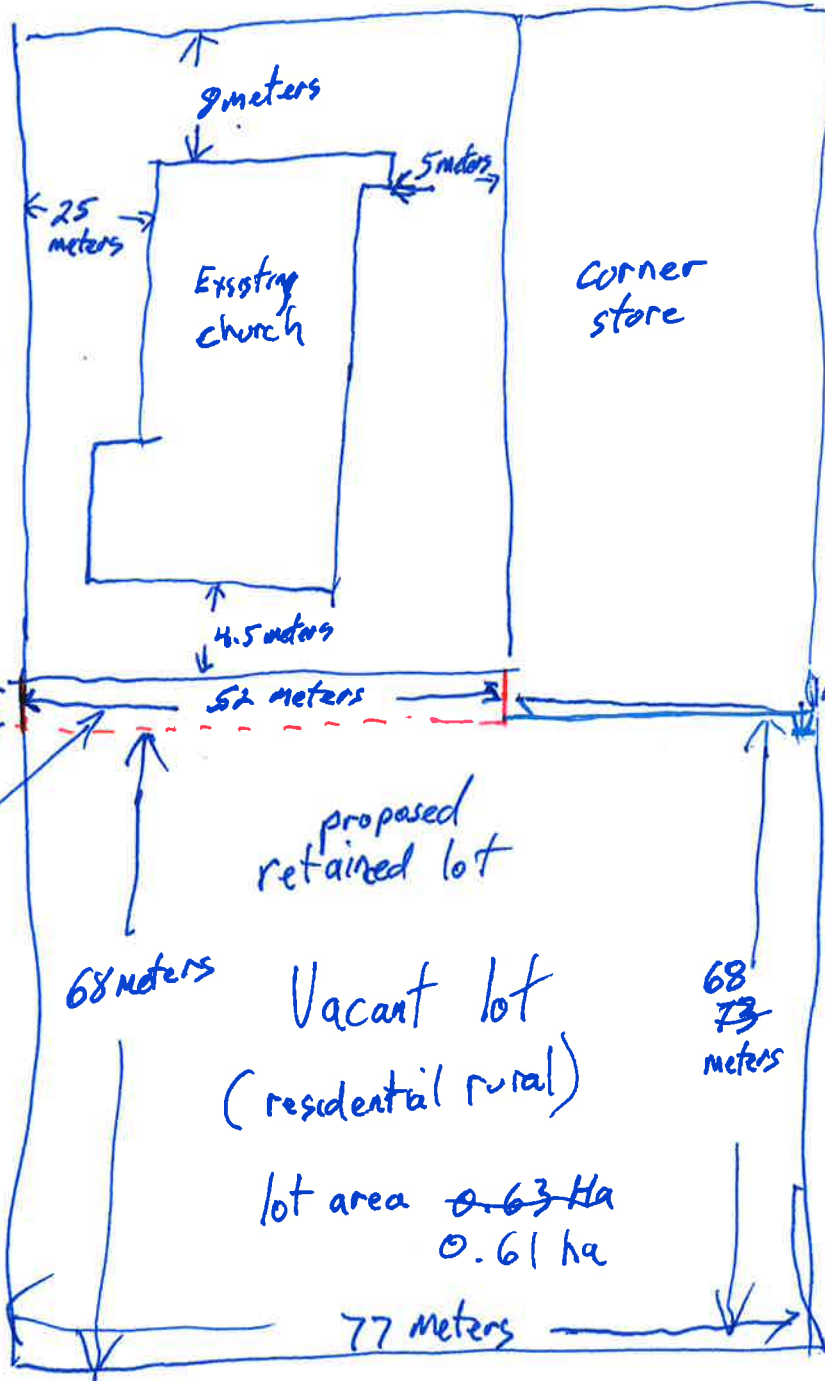 8 meters
5 meters
25
meters
Exsisting
church
corner
store
4.5 meters
52 meters
proposed
retained lot
68 meters
Vacant lot
(residential rural)
68
73
meters
lot area 0.63 Ha
0.61 ha
77 Meters